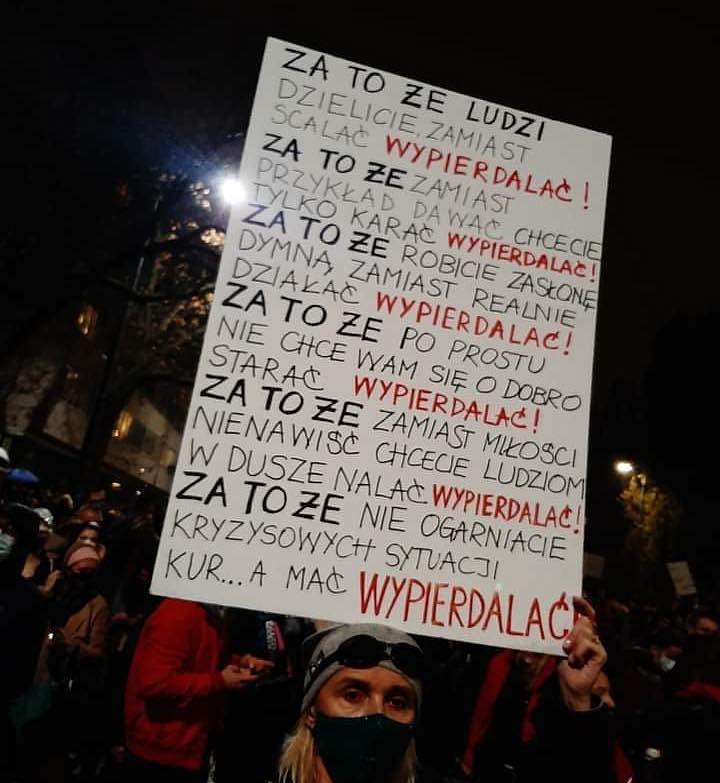 ZA TO ŻE LUDZI
DZIELICIE, ZAMIAST
SCALAĆ WYPIERDALAĆ!
ZA TO ŻE ZAMIAST
PRZYKŁAD DAWAĆ CHCECIE
TYLKO KARAĆ WYPIERDALAĆ!
ZA TO ŻE ROBICIE ZASŁONĘ
DYMNĄ, ZAMIAST REALNIE
DZIAŁAĆ WYPIERDALAĆ!
ZA TO ŻE PO PROSTU
NIE CHCE WAM SIĘ O DOBRO
STARAĆ WYPIERDALAĆ!
ZA TO ŻE ZAMIAST MIŁOŚCI
NIENAWIŚĆ CHCECIE LUDZIOM
W DUSZE NALAĆ WYPIERDALAĆ!
ZA TO ŻE NIE OGARNIACIE
KRYZYSOWYCH SYTUACJI
KUR...A MAĆ WYPIERDALAĆ!